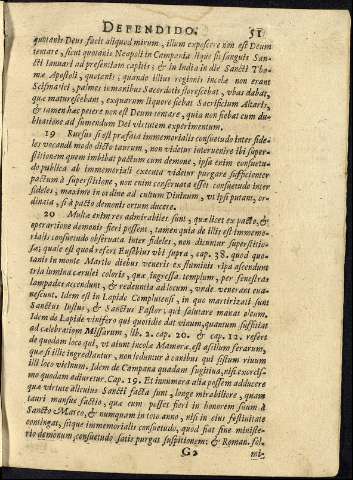 DEFENDIDO. 51
quotanis Deus facit aliquod mirum, illum exposcere non est Deum
tentare, sicut quotanis Neapoli in Campania liquescit sanguis San-
cti Ianuarij ad præsentiam capitis: & in India in die Sancti Tho-
mæ Apostoli, quotanis, quando illius regionis incolæ non erant
palmes iam onibus Sacerdotis florescebat, vbas dabat,
quæ maturescebant, ex quarum liquore fiebat Sacrificium Altaris,
& tamen hac petere non est Deum tentare, quia non fiebat cum du-
bitatione ad sumendum Dei virtutem experimentum.
19 Rursus si est præfata immemorialis consuetudo inter fide-
les vocandi modo dicto taurum, non videtur intervenire ibi super-
stitionem quem imbibat pactum cum demone, ipsa enim consuetu-
do publica ab immemoriali executa videtur purgare sufficienter
pactum à superstitione, non enim conservata esset consuetudo inter
fideles, maxime in ordine ad cultum Divinum, vt ipsi putant, or-
dinata, si à pacto demonis ortum ducere.
20 Multæ enim res admirabiles sunt, quæ licet ex pacto, &
operatione demonis fieri possent, tamen quia de illis est immemo-
rialis consuetudo observata inter fideles, non dicuntur superstitio-
sas, quale est quod refert Eusebius vbi supra, cap. 38. quod quo-
tanis in monte Marilo diebus veneris ex fluminis ripa ascendunt
tria lumina cærulei coloris, quæ ingressa templum, per fenestras
lampades accendunt, & redeuntia ad locum, vnde venerant eua-
nescunt. Idem est in Lapide Complutensi, in quo martirizati sunt
Sanctus Iustus, & Sanctus Pastor; qui salutare manat oleum.
Idem de Lapide vinifero qui quotidie dat vinum, quantum sufficiat
ad celebrationem Missarum, lib. 2. cap. 20. & cap. 12. refert
de quodam loco qui, vt aiunt incolæ Mamoræ, est asilum ferarum,
quæ si illic ingrediantur, non læduntur à canibus qui sistunt vium
illi loco vicinum. Idem de Campana quadam fugitiua, nisi exorcis-
mo quodam adiuretur. Cap. 19. Et innumera alia possem adducere
quæ virtute alicuius Sancti facta sunt, longe mirabiliore, quam
tauri mansue factio, quæ cum posset fieri in honorem suum à
Sancto Marco, & numquam in toto anno, nisi in eius festiuitate
contingat, sitque immemorialis consuetudo, quod fiat sine ministe-
rio demonum, consuetudo satis purgat suspitionem: & Roman. fol.
G2 mi-